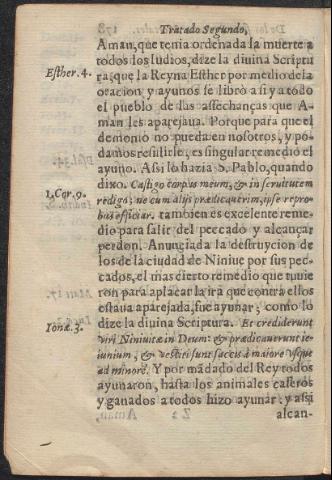 Tratado Segundo,
Aman, que tenia ordenada la muerte a
todos los Iudios, dize la diuina Scriptu
Esther. 4.
ra; que la Reyna Esther por medio de la
oracion y ayunos se libró a si y a todo
el pueblo de las assechanças que A-
man les aparejaua. Porque para que el
demonio no pueda en nosotros, y po-
damos resistirle, es singular remedio el
ayuno. Assi lo hazia S. Pablo, quando
dixo. Castigo corpus meum, & in seruitutem
1. Cor. 9.
redigo; ne cum alijs prædicauerim, ipse repro-
bus efficiar. tambien es excelente reme-
dio para salir del peccado y alcançar
perdon. Anunciada la destruycion de
los de la ciudad de Niniue por sus pec-
cados, el mas cierto remedio que tuuie
ron para aplacar la ira que contra ellos
estaua aparejada, fue ayunar; como lo
Ionæ. 3.
dize la diuina Scriptura. Et crediderunt
viri Niniuitæ in Deum: & prædicauerunt ie-
iunium, & vestiti sunt saccis à maiore vsque
ad minorē. Y por mādado del Rey todos
ayunaron, hasta los animales caseros
y ganados a todos hizo ayunar: y assi
alcan-